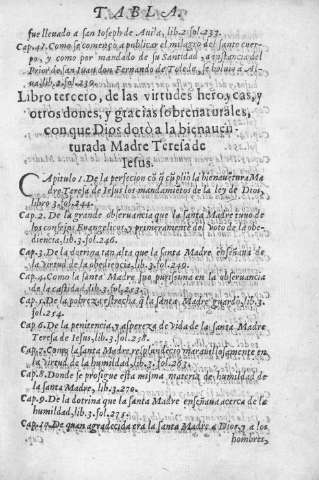 TABLA.
fue lleuado a san Ioseph de Auila, lib.2.fol.233.
Cap.41. Como se començo a publicar el milagro del santo cuerpo,
y como por mandado de su Santidad, a instancia del
Prior de san Iuan don Fernando de Toledo, se boluio a Alua,
lib.2.fol.
Libro tercero, de las virtudes heroycas, y
otros dones, y gracias sobrenaturales,
con que Dios dotò a la bienauen-
turada Madre Teresa de
Iesus.
CApitulo 1. De la perfecion cõ q̃ cũplio la bienauẽturada Ma
dre Teresa de Iesus los mandamiẽtos de la ley de Dios,
libro 3. fol.244.
Cap.2. De la grande obseruancia que la santa Madre tuuo de
los consejos Euangelicos, y primeramente del voto de la obe-
diencia, lib.3.fol.246.
Cap.3. De la dotrina tan alta que la santa Madre enseñaua de
la virtud de la obediencia, lib.3.fol.
Cap.4. Como la santa Madre fue purissima en la obseruancia
de la castidad, lib.3.fol.
Cap.5. De la pobreza estrecha q̃ la santa Madre guardò, lib.3.
fol.254.
Cap.6. De la penitencia, y aspereza de vida de la santa Madre
Teresa de Iesus, lib.3.fol.258.
Cap.7. Como la santa Madre resplandecio marauillosamente en
la virtud de la humildad, lib.3.fol.
Cap.8. Donde se prosigue esta misma materia de humildad de
la santa Madre, lib.3.270.
Cap.9. De la dotrina que la santa Madre enseñaua acerca de la
humildad, lib.3.fol.275.
Cap.10. De quan agradecida era la santa Madre a Dios, y a los
hombres,